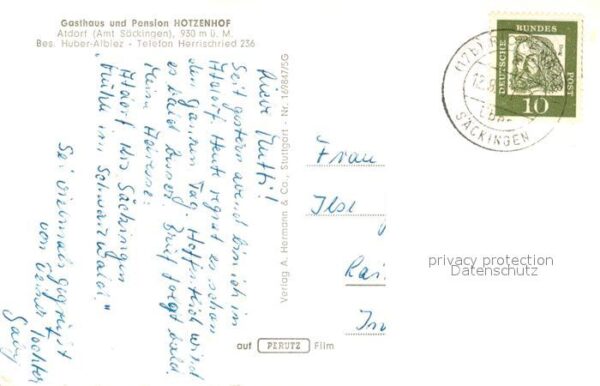 Gasthaus und Pension HOTZENHOF
Atdorf (Amt Säckingen), 930 m ü. M.
Bes. Huber-Albiez - Telefon Herrischried 236
Liebe Mutti!
Seit gestern abend bin ich in
Atdorf. Heute regnet es schon
den ganzen Tag. Hoffentlich wird
es bald besser. Brief folgt bald.
Meine Adresse:
Atdorf Krs. Säckingen
"Mühle im Schwarzwald."
Sei vielmals gegrüsst
von Deiner Tochter
Gaby
Verlag A. Hermann & Co., Stuttgart - Nr. 169847/5G
auf PERUTZ Film
Frau
Ilse
DEUTSCHE BUNDES POST
10
(17b)
SÄCKINGEN
privacy protection
Datenschutz